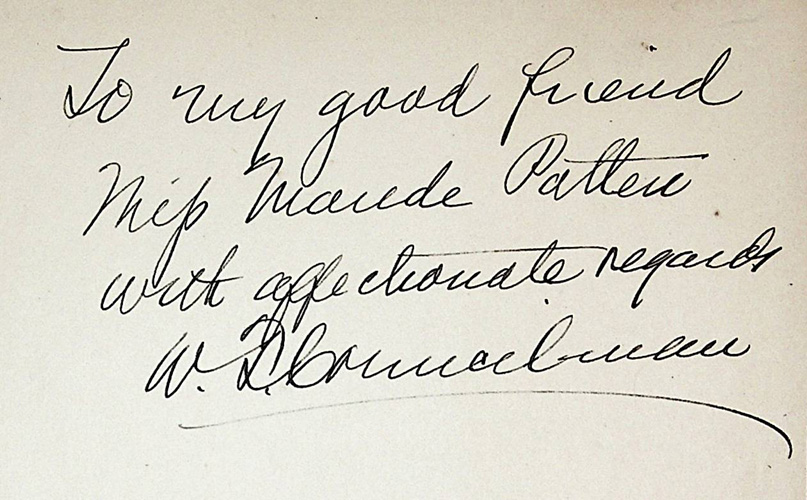 To my good friend
Miss Maude Patten
with affectionate regards
W. D.